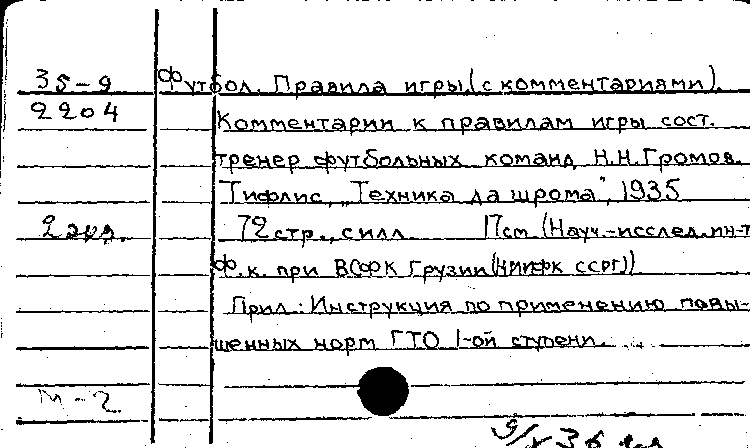 35-9 Футбол. Правила игры (с комментариями).
2204 Комментарии к правилам игры сост.
тренер футбольных команд Н.Н. Громов.
Тифлис, „Техника да шрома", 1935
2 экз. 72 стр., с илл. 17 см (Науч.-исслед. ин-т
Ф.к. при ВСФК Грузии (НИИФК ССРГ))
Прил.: Инструкция по применению повы-
шенных норм ГТО 1-ой ступени.
М-2